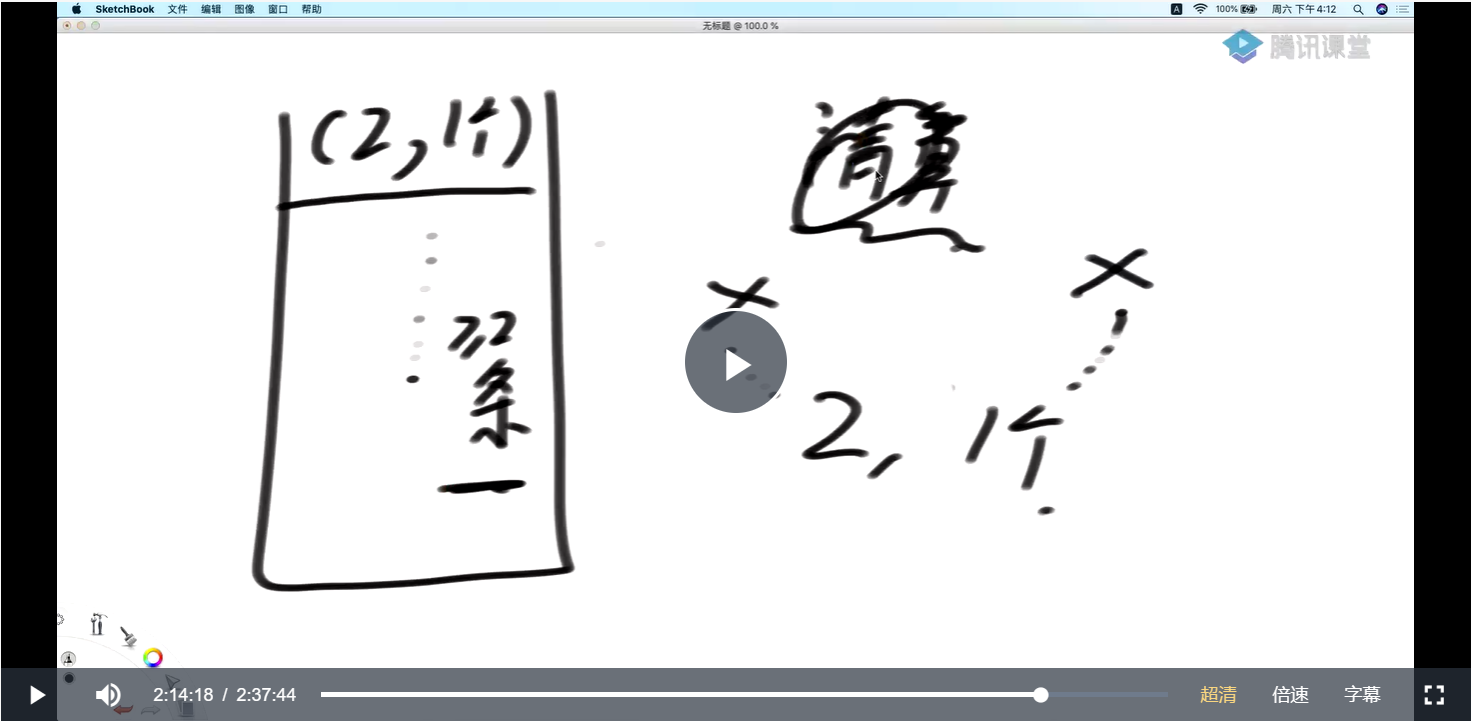 SketchBook 文件 编辑 图像 窗口 帮助
A 100% 周六 下午4:12
无标题 @ 100.0 %
腾讯课堂
(2,1个)
清算
累
条
2,1个
2:14:18 / 2:37:44 超清 倍速 字幕